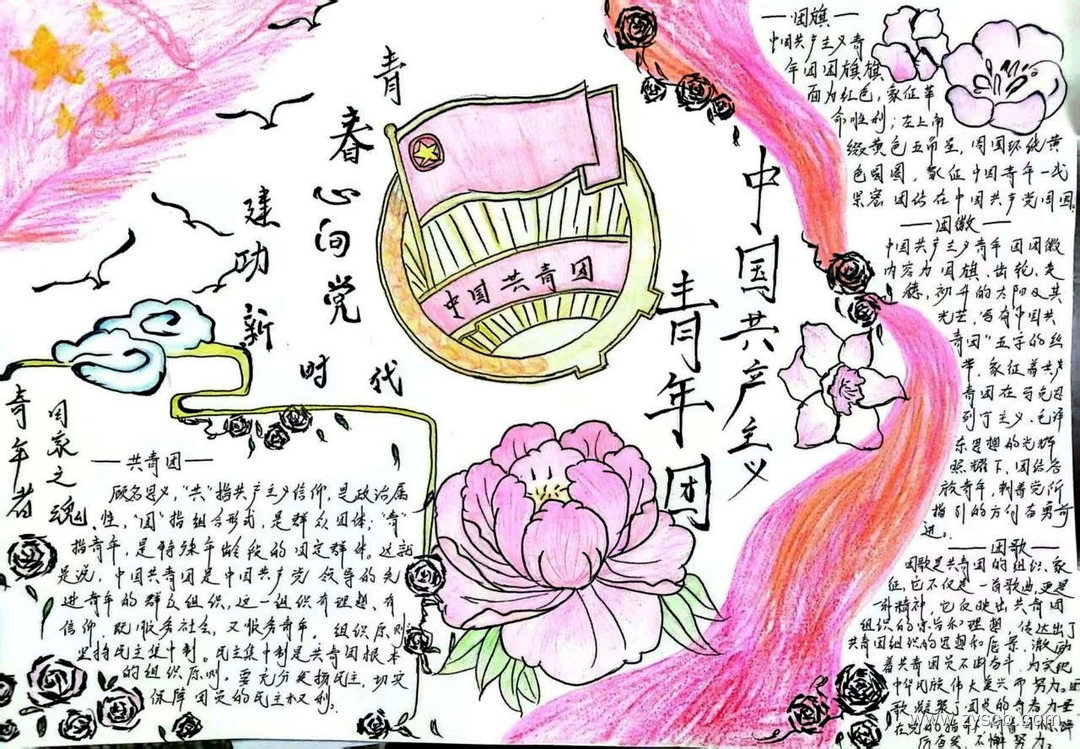 青春心向党
建功新时代
中国共青团
中国共产主义
青年团
青年者
国家之魂
—共青团—
顾名思义，"共"指共产主义信仰，是政治属
性，"团"指组合形式，是群众团体，"青"
指青年，是特殊年龄段的固定群体。这就
是说，中国共青团是中国共产党领导的先
进青年的群众组织，这一组织有理想、有
信仰，既服务社会，又服务青年。组织原则
坚持民主集中制。民主集中制是共青团根本
的组织原则，要充分发扬民主，切实
保障团员的民主权利。
—团旗—
中国共产主义青
年团团旗旗
面为红色，象征革
命胜利；左上角
缀黄色五角星，周围环绕黄
色圆圈，象征中国青年一代
紧密团结在中国共产党周围。
—团徽—
中国共产主义青年团团徽
内容为团旗、齿轮、麦
穗，初升的太阳及其
光芒，写有"中国共
青团"五字的丝
带，象征着共产
青团在马克思
列宁主义、毛泽
东思想的光辉
照耀下，团结各
族青年，朝着党所
指引的方向奋勇前
进。
—团歌—
团歌是共青团的组织、象
征，它不仅是一首歌曲，更是
一种精神，它反映出共青团
组织的宗旨和理想，传达出了
共青团组织的思想和愿景，激励
着共青团员不断奋斗，为实现
中华民族伟大复兴而努力。
歌凝聚了团员的青春力量
在党的指引
历奋然，不懈努力
www.zyscb.com